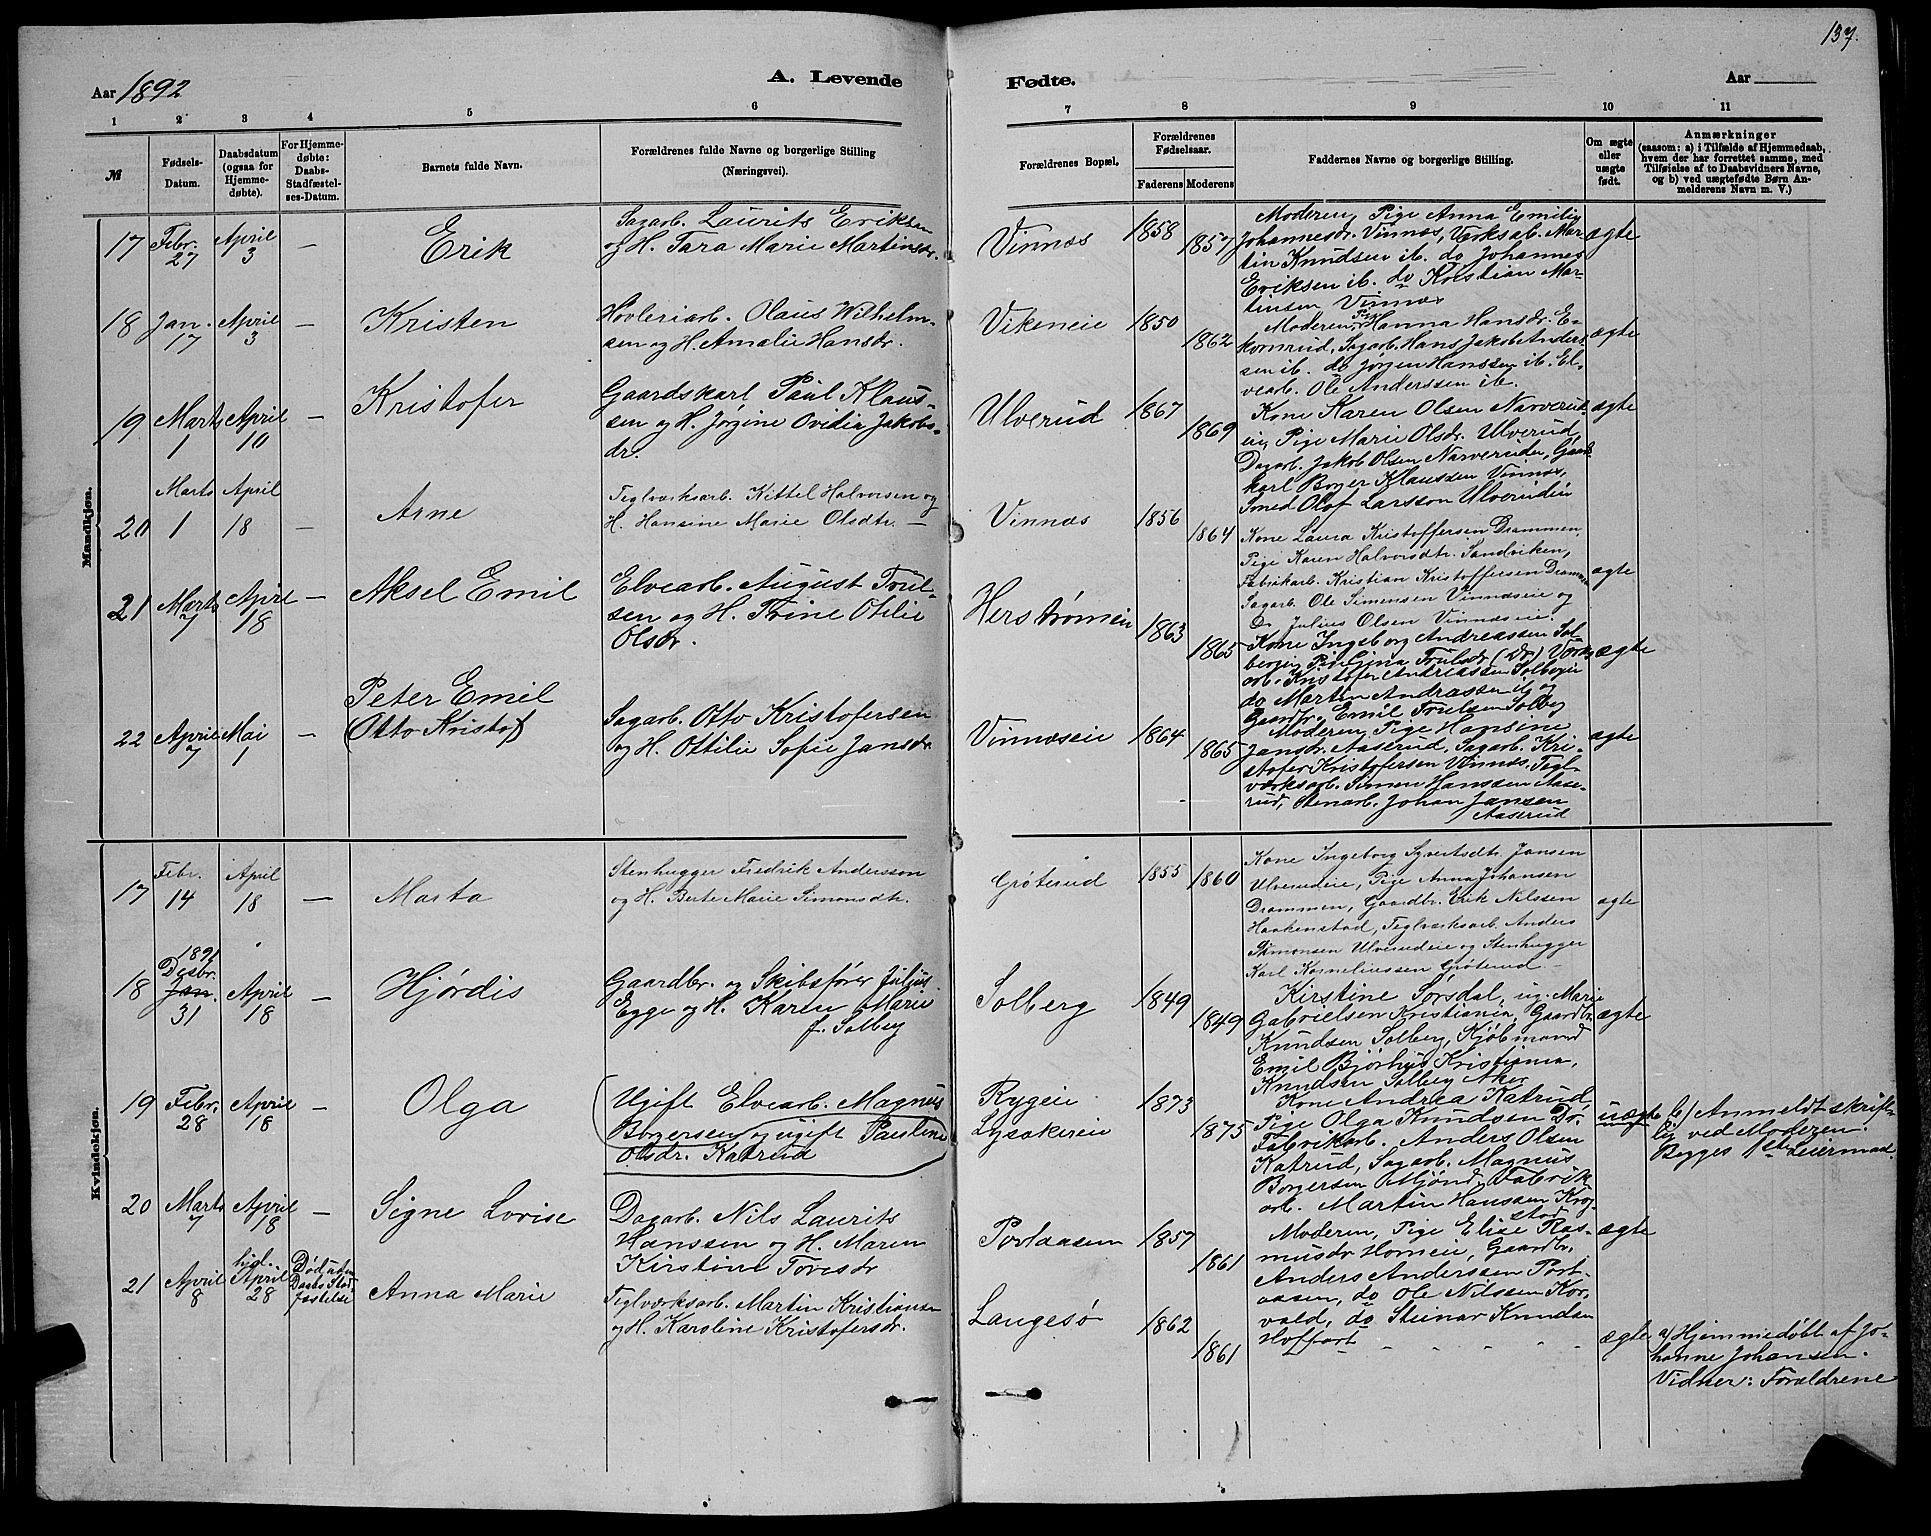 137.
Aar 1892
A. Levende
Fødte.
Aar
1 2 3 4 5 6 7 8 9 10 11
№
Fødsels-
Datum.
Daabsdatum
(ogsaa for
Hjemme-
døbte).
For Hjemme-
døbte:
Daabs-
Stadfæstel-
ses-Datum.
Barnets fulde Navn.
Forældrenes fulde Navne og borgerlige Stilling
(Næringsvei).
Forældrenes Bopæl.
Forældrenes
Fødselsaar.
Faderens Moderens
Faddernes Navne og borgerlige Stilling.
Om ægte
eller
uægte
født.
Anmærkninger
(saasom: a) i Tilfælde af Hjemmedaab,
hvem der har forrettet samme, med
Tilføielse af to Daabsvidners Navne,
og b) ved uægtefødte Børn An-
melderens Navn m. V.)
Mandkjøn.
17 Febr. 27 April 3 — Erik
Sagarb. Laurits Eriksen
og H. Tara Marie Martinsdr.
Vinnæs 1858 1857
Moderen, Pige Anna Emilie
Johannesdr. Vinnæs, Værksab. Mar-
tin Knudsen ib. do Johannes
Eriksen ib. do Kristian Mar-
tinsen Vinnæs
ægte
18 Jan. 17 April 3 — Kristen
Hovleriarb. Olaus Wilhelm-
sen og H. Amalie Hansdr.
Vikeneie 1850 1862
Moderen, Pige Hanna Hansdr. E-
kornrud, Sagarb. Hans Jakob Anders-
sen ib. do Jørgen Hanssen ib. El-
vearb. Ole Anderssen ib.
ægte
19 Marts 1 April 10 — Kristofer
Gaardskarl Paul Klaus-
sen og H. Jørgine Ovidia Jakobs-
dr.
Ulverud 1867 1869
Kone Karen Olsen Narverud-
eie, Pige Marie Olsdr. Ulverud,
Dagarb. Jakob Olsen Narverudeie, Gaards-
karl Borger Klaussen Vinnæs,
Smed Olof Larsson Ulverudeie
ægte
20 Marts 1 April 18 — Arne
Teglværksarb. Kittel Halvorsen og
H. Hansine Marie Olsdtr. —
Vinnæs 1856 1864
Kone Laura Kristoffersen Drammen,
Pige Karen Halvorsdtr. Sandviken,
Fabrikarb. Kristian Kristoffersen Drammen
Sagarb. Ole Simensen Vinnæseie og
Do Julius Olsen Vinnæseie.
ægte
21 Marts 7 April 18 — Aksel Emil
Elvearb. August Trul-
sen og H. Trine Otilie
Olsdr.
Herstrømeie 1863 1865
Kone Ingeborg Andreassen Sol-
bergeie, Pige Lina Trulsdr (Dr) Værks-
arb. Kristofer Andreassen Solbergeie
do Martin Andreassen ib og
Gaardbr. Emil Trulsen Solberg
ægte
22 April 7 Mai 1 — Peter Emil
(Otto Kristof)
Sagarb. Otto Kristofersen
og H. Ottilie Sofie Jansdr
Vinnæseie 1864 1865
Moderen, Pige Hansine
Jansdr. Aaserud, Sagarb. Kri-
stofer Kristofersen Vinnæs, Tegl-
værksarb. Simen Hanssen Aase-
rud, Stenarb. Johan Jansen
Aaserud
ægte
Kvindekjøn.
17 Febr. 14 April 18 — Marta
Stenhugger Fredrik Andersson
og H. Berte Marie Simonsdtr.
Grøterud 1855 1860
Kone Ingeborg Syvertsdtr. Jansen
Ulverudeie, Pige Anna Johansen
Drammen, Gaardbr. Erik Nilssen
Haakenstad, Teglværksarb. Anders
Simonsen Ulverudeie og Stenhugger
Karl Korneliussen Grøterud. —
ægte
18 1891 Desbr. Jan. 31 April 18 — Hjørdis
Gaardbr. og Skibsfører Julius
Egge og H. Karen Marie
f. Solberg
Solberg 1849 1849
Kirstine Sørsdal, ug. Marie
Gabrielsen Kristiania, Gaardbr.
Knudsen Solberg, Kjøbmand
Emil Bjørhus Kristiania,
Knudsen Solberg Aker
ægte
19 Febr. 28 April 18 — Olga
Ugift Elvearb. Magnus
Borgersen og ugift Pauline
Olsdr. Katrud
Rygeie
Lysakereie
1873 1875
Kone Andrea Katrud,
Pige Olga Knudsen Dr,
Fabrikarb. Anders Olsen
Katrud, Sagarb. Magnus
Borgersen Mjønd, Fabrik-
arb. Martin Hanssen Krog-
stad
uægte
b) Anmeldt skrift-
lig ved Moderen.
Begges 1ste Leiermaal.
20 Marts 7 April 18 — Signe Lovise
Dagarb. Nils Laurits
Hanssen og H. Maren
Kirstine Toresdr
Portaasen 1857 1861
Moderen, Pige Elise Ras-
musdr Horneie, Gaardbr.
Anders Anderssen Port-
aasen, do Ole Nilssen Kor-
vald, do Steinar Knudsen
Hoffart
ægte
21 April 8 hjd. April 28 Død uden
Daabs Stad-
fæstelse
Anna Marie
Teglværksarb. Martin Kristiansen
og H. Karoline Kristofersdr.
Langesø 1862 1861
ægte
a) Hjemmedøbt af Jo-
hanne Johansen.
Vidner: Forældrene